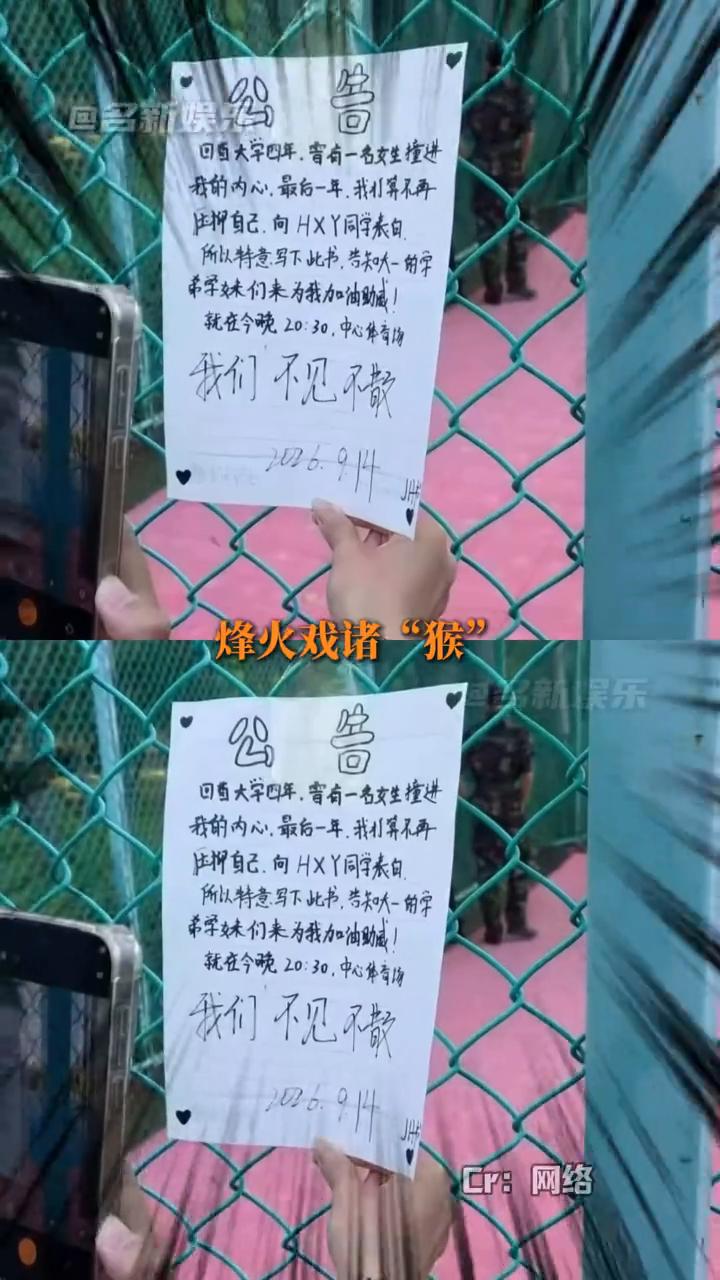 @名新娱乐
公 告
回首大学四年，曾有一名女生撞进
我的内心，最后一年，我打算不再
压抑自己，向HXY同学表白.
所以特意写下此书，告知大一的学
弟学妹们来为我加油助威！
就在今晚 20:30，中心体育场
我们 不见 不散
2026.9.14
烽火戏诸“猴”
@名新娱乐
公 告
回首大学四年，曾有一名女生撞进
我的内心，最后一年，我打算不再
压抑自己，向HXY同学表白.
所以特意写下此书，告知大一的学
弟学妹们来为我加油助威！
就在今晚 20:30，中心体育场
我们 不见 不散
2026.9.14
Cr：网络